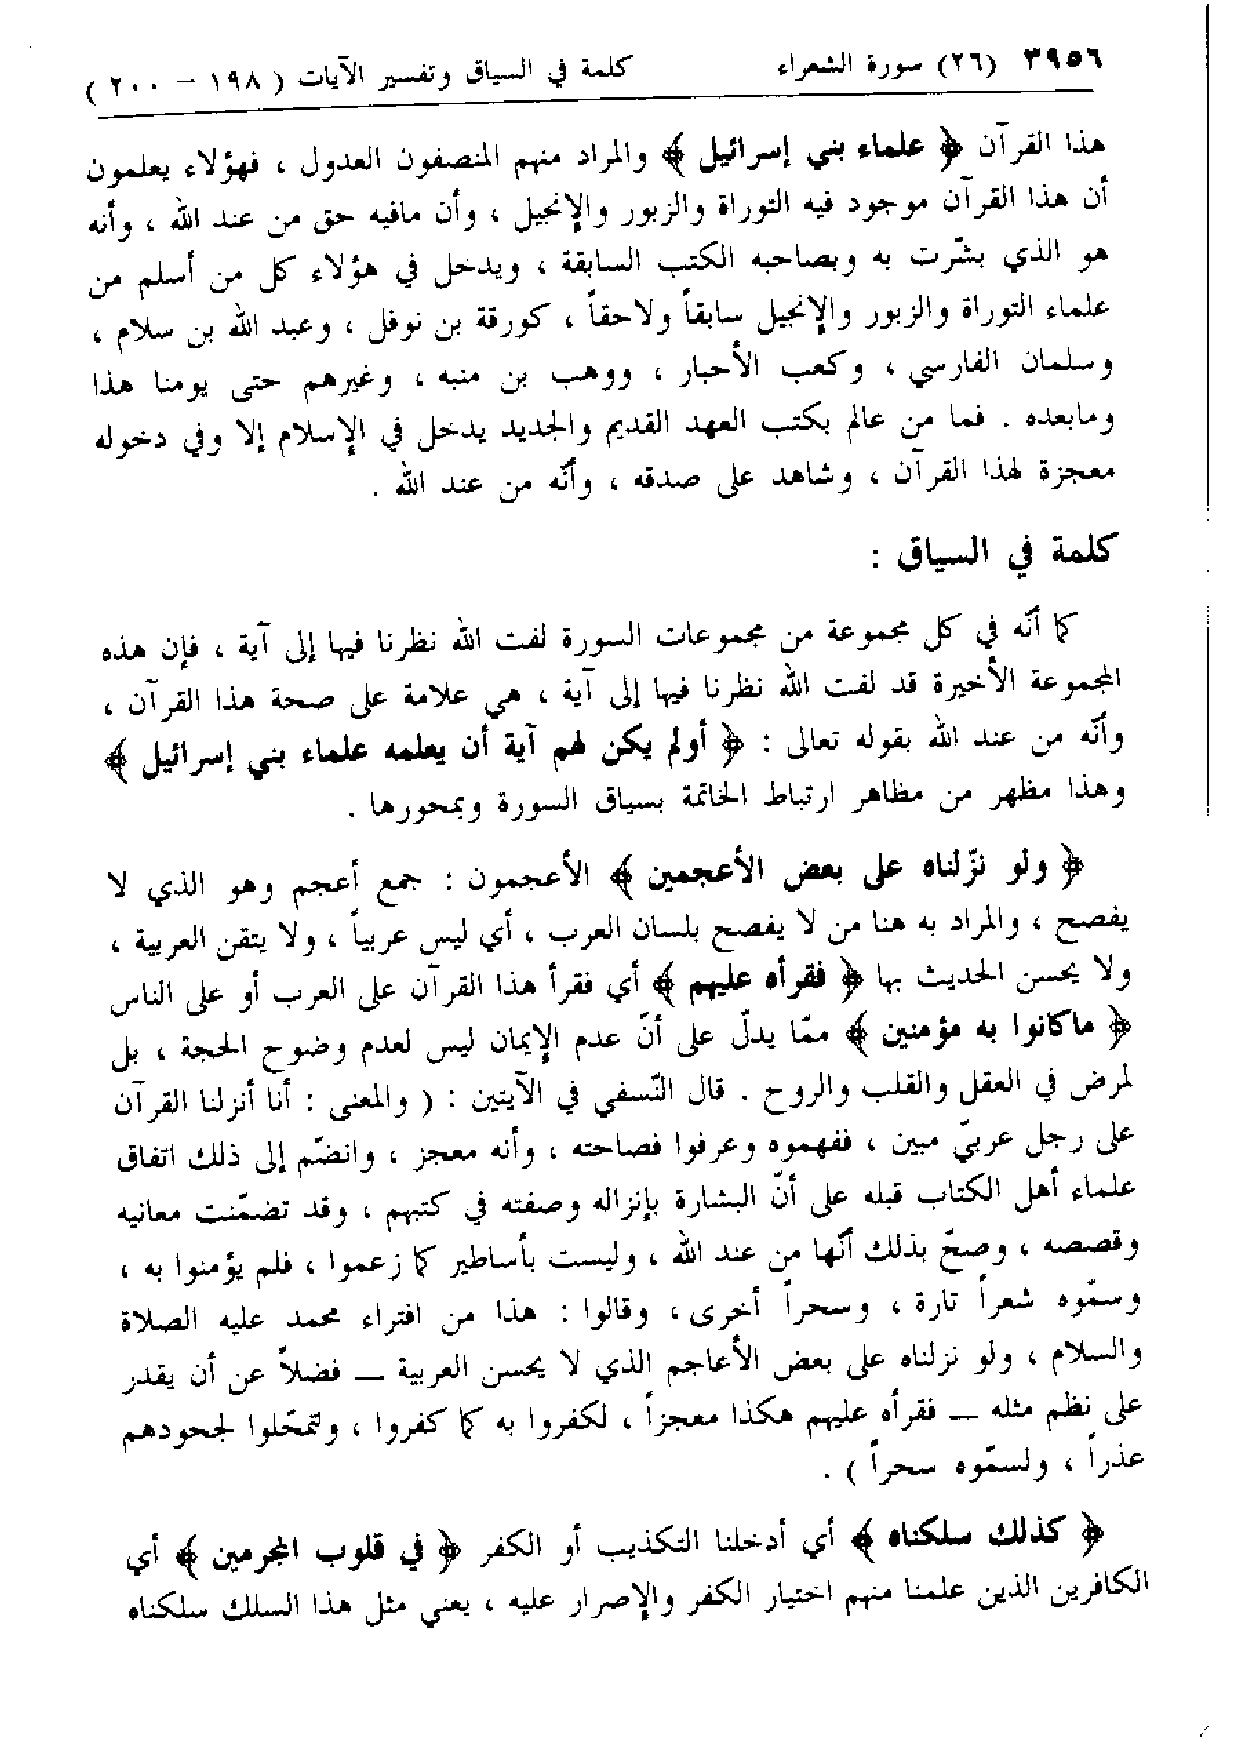 ٣٩٥٦ (٢٦) سورة الشعراء كلمة في السياق وتفسير الآيات ( ١٩٨ – ٢٠٠ )
هذا القرآن ﴿ علماء بني إسرائيل ﴾ والمراد منهم المنصفون العدول ، فهؤلاء يعلمون
أن هذا القرآن موجود فيه التوراة والزبور والإنجيل ، وأن مافيه حق من عند الله ، وأنه
هو الذي بشّرت به وبصاحبه الكتب السابقة ، ويدخل في هؤلاء كل من أسلم من
علماء التوراة والزبور والإنجيل سابقاً ولاحقاً ، كورقة بن نوفل ، وعبد الله بن سلام ،
وسلمان الفارسي ، وكعب الأحبار ، ووهب بن منبه ، وغيرهم حتى يومنا هذا
ومابعده . فما من عالم بكتب العهد القديم والجديد يدخل في الإسلام إلا وفي دخوله
معجزة لهذا القرآن ، وشاهد على صدقه ، وأنّه من عند الله .
كلمة في السياق :
كما أنّه في كل مجموعة من مجموعات السورة لفت الله نظرنا فيها إلى آية ، فإن هذه
المجموعة الأخيرة قد لفت الله نظرنا فيها إلى آية ، هي علامة على صحة هذا القرآن ،
وأنّه من عند الله بقوله تعالى : ﴿ أولم يكن لهم آية أن يعلمه علماء بني إسرائيل ﴾
وهذا مظهر من مظاهر ارتباط الخاتمة بسياق السورة وبمحورها .
﴿ ولو نزّلناه على بعض الأعجمين ﴾ الأعجمون : جمع أعجم وهو الذي لا
يفصح ، والمراد به هنا من لا يفصح بلسان العرب ، أي ليس عربياً ، ولا يتقن العربية ،
ولا يحسن الحديث بها ﴿ فقرأه عليهم ﴾ أي فقرأ هذا القرآن على العرب أو على الناس
﴿ ماكانوا به مؤمنين ﴾ ممّا يدلّ على أنّ عدم الإيمان ليس لعدم وضوح الحجة ، بل
لمرض في العقل والقلب والروح . قال النّسفي في الآيتين : ( والمعنى : أنا أنزلنا القرآن
على رجل عربيّ مبين ، ففهموه وعرفوا فصاحته ، وأنه معجز ، وانضمّ إلى ذلك اتفاق
علماء أهل الكتاب قبله على أنّ البشارة بإنزاله وصفته في كتبهم ، وقد تضمّنت معانيه
وقصصه ، وصحّ بذلك أنّها من عند الله ، وليست بأساطير كما زعموا ، فلم يؤمنوا به ،
وسمّوه شعراً تارة ، وسحراً أخرى ، وقالوا : هذا من افتراء محمد عليه الصلاة
والسلام ، ولو نزلناه على بعض الأعاجم الذي لا يحسن العربية — فضلاً عن أن يقدر
على نظم مثله — فقرأه عليهم هكذا معجزاً ، لكفروا به كما كفروا ، ولتمحّلوا لجحودهم
عذراً ، ولسمّوه سحراً ) .
﴿ كذلك سلكناه ﴾ أي أدخلنا التكذيب أو الكفر ﴿ في قلوب المجرمين ﴾ أي
الكافرين الذين علمنا منهم اختيار الكفر والإصرار عليه ، يعني مثل هذا السلك سلكناه